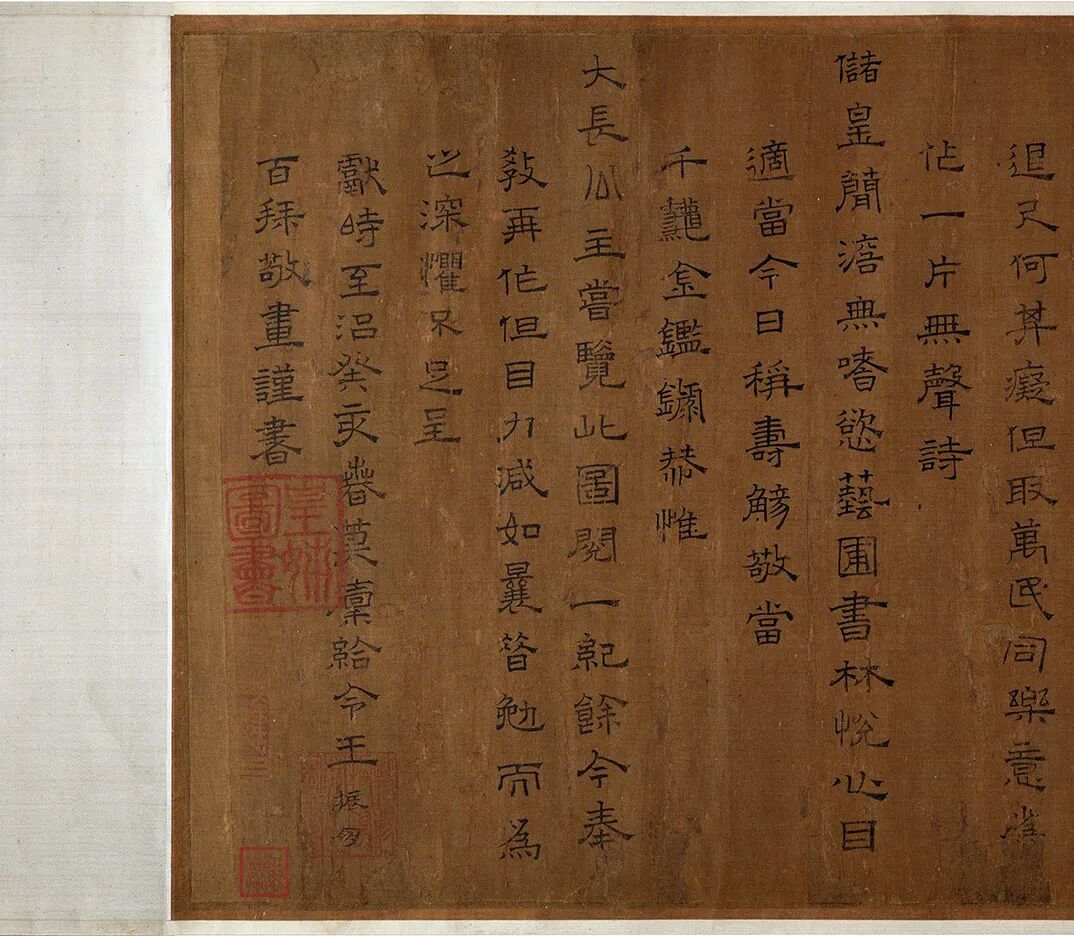 退尺何其癡但取萬民同樂意
作一片無聲詩
儲皇簡澹無嗜慾藝圃書林悅心目
適當今日稱壽觴敬當
千龝金鑑錄恭惟
大長公主嘗覽此圖閱一紀餘今奉
教再作但目力減如曩昔勉而為
之深懼不足呈
獻時至治癸亥春莫廩給令王振鵬
百拜敬畫謹書
皇姊圖書